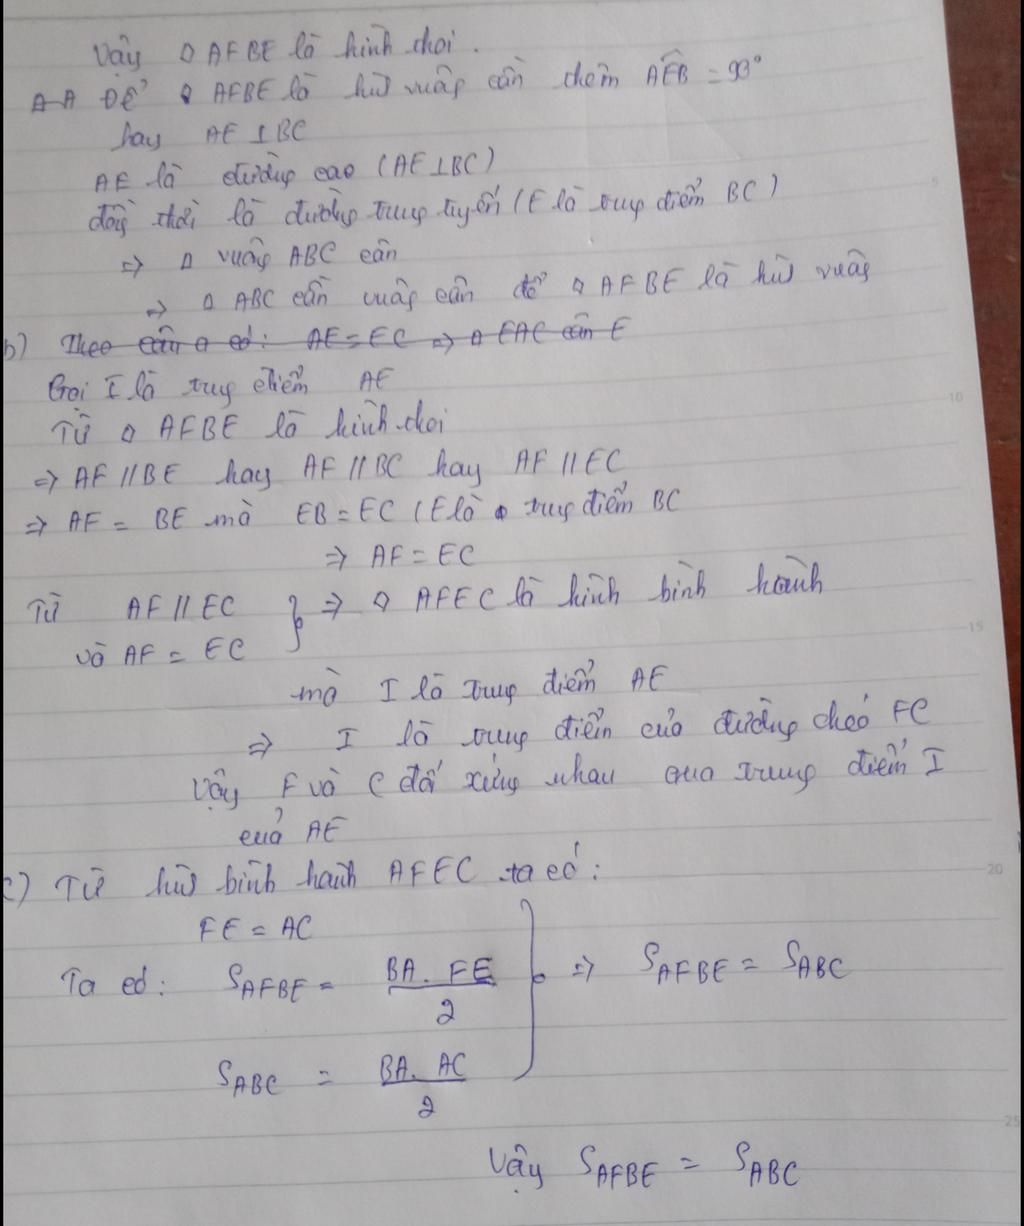 Vậy ◇ AFBE là hình thoi.
Để ◇ AFBE là hìn vuông cần thêm AÊB = 90°
hay AE ⊥ BC
AE là đường cao (AE ⊥ BC)
đồng thời là đường trung tuyến (E là trung điểm BC)
=> Δ vuông ABC cân
=> Δ ABC cần vuông cân để ◇ AFBE là hìn vuông
b) Theo câu a có: AE = EC => Δ EAC cân E
Gọi I là trung điểm AE
Từ ◇ AFBE là hình thoi
=> AF // BE hay AF // BC hay AF // EC
=> AF = BE mà EB = EC (E là trung điểm BC
=> AF = EC
Từ AF // EC } => ◇ AFEC là hình bình hành
và AF = EC
mà I là trung điểm AE
=> I là trung điểm của đường chéo FC
Vậy F và C đối xứng nhau qua trung điểm I
của AE
c) Từ hìn bình hành AFEC ta có:
FE = AC
Ta có: S_AFBE = BA. FE / 2 } => S_AFBE = S_ABC
S_ABC = BA. AC / 2
Vậy S_AFBE = S_ABC
10
15
20
25